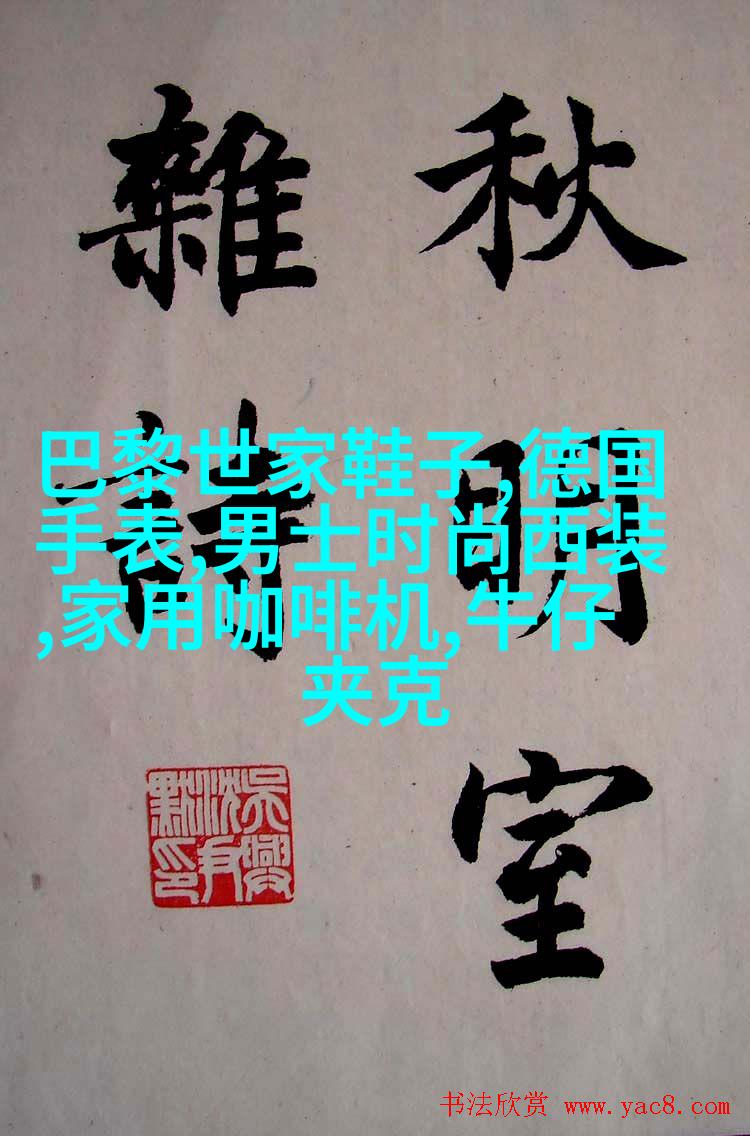 秋明室
雜詩
巴黎世家鞋子,德国
手表,男士时尚西装
,家用咖啡机,牛仔
夹克
吳興
沈尹
默印
书法欣赏 www.yac8.com